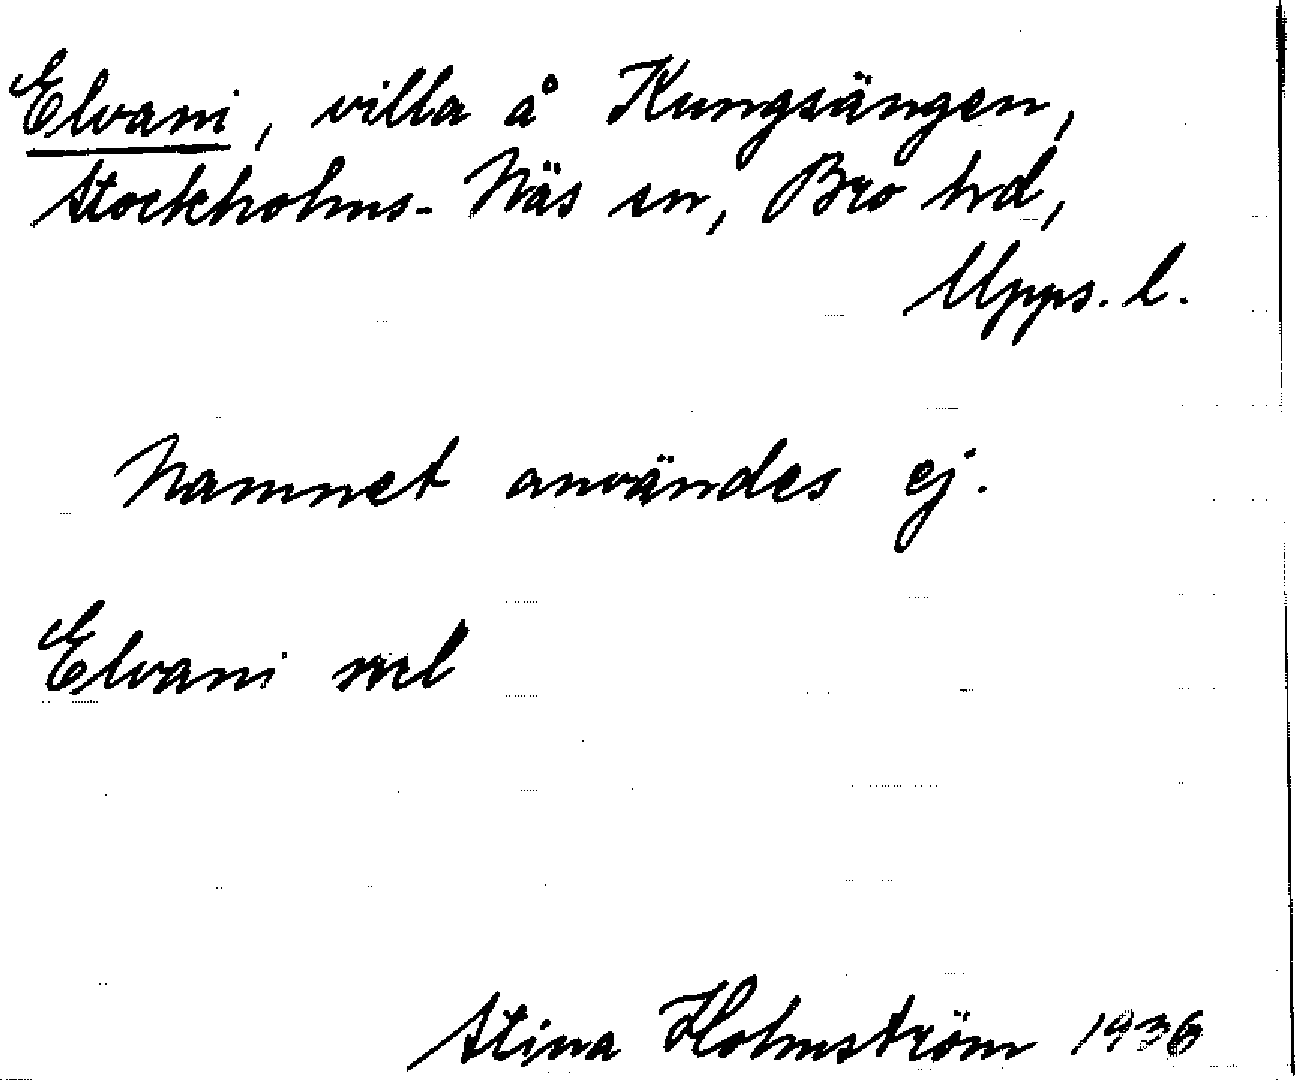 Elvani, villa å Kungsängen,
Stockholms-Näs sn, Bro hd,
Upps. l.
Namnet användes ej.
Elvani
Stina Holmström 1936